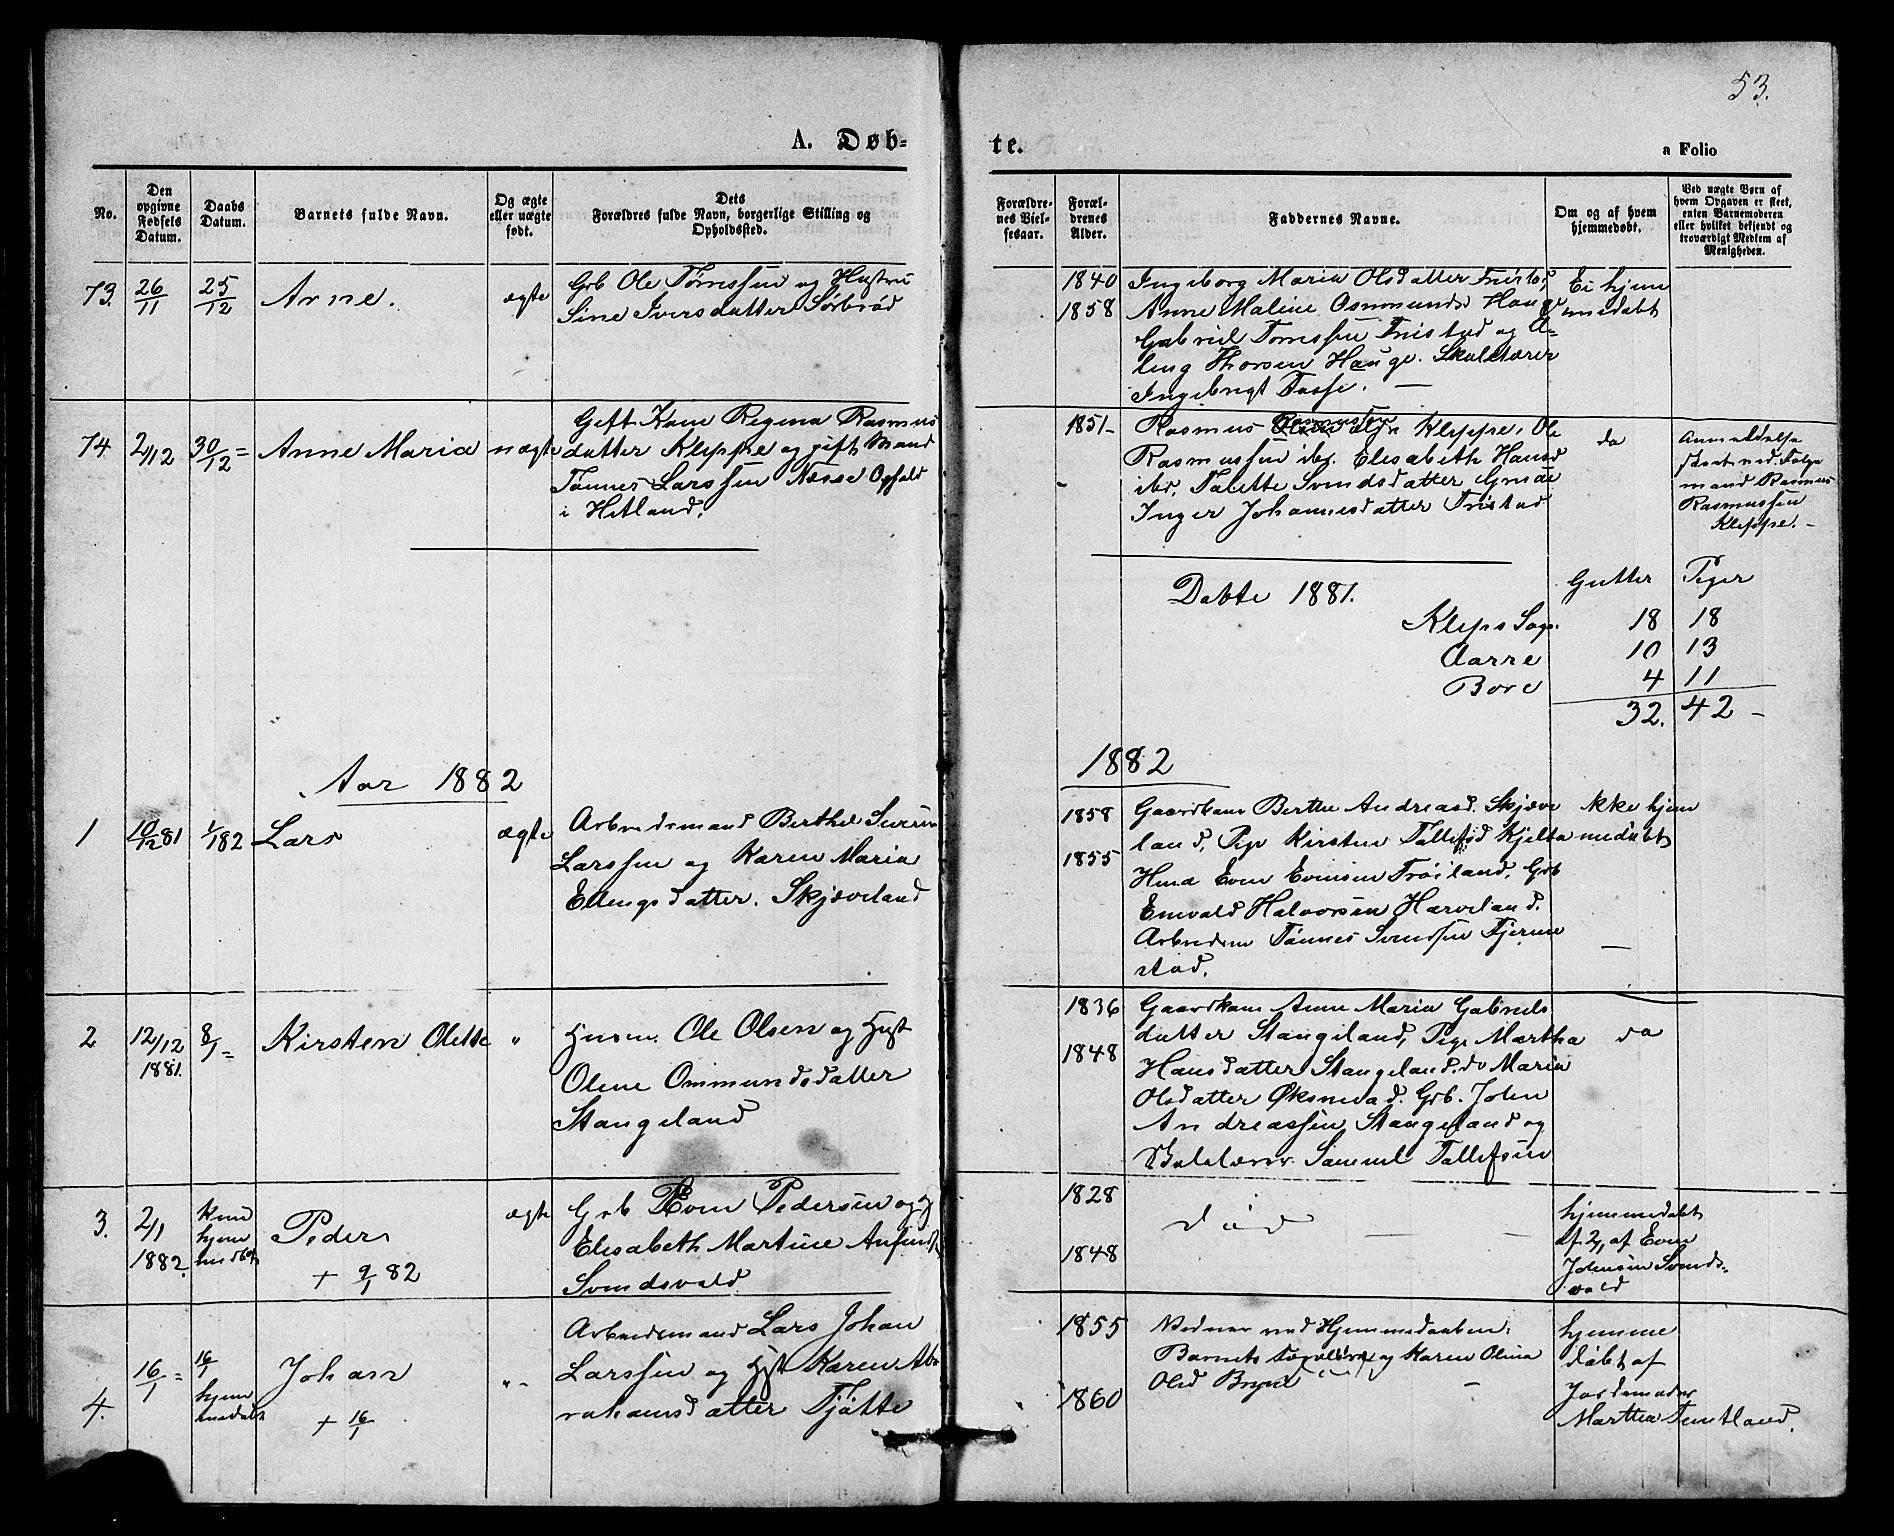 53.
A. Døb-
te.
a Folio
No.
Den opgivne Fødsels Datum.
Daabs Datum.
Barnets fulde Navn.
Og ægte eller uægte født.
Dets
Forældres fulde Navn, borgerlige Stilling og
Opholdssted.
Forældre-
nes Viel-
sesaar.
Foræl-
drenes
Alder.
Faddernes Navne.
Om og af hvem
hjemmedøbt.
Ved uægte Børn af
hvem Opgaven er skeet,
enten Barnemoderen
eller hvilket bekjendt og
troværdigt Medlem af
Menigheden.
73. 26/11 25/12 Arne. ægte
Grb Ole Tørressen og Hustru
Sine Iversdatter Sørbrød
1840
1858
Ingeborg Maria Olsdatter
Anne Maline Osmundsd Hauge
Gabriel Torressen Tristad og
Thorsen Hauge. Skolelærer
Ingebrigt Tosse. —
Ei hjem
medøbt
74 2/12 30/12 = Anne Maria uægte
Gift Kone Regina Rasmus
datter Kleppe og gift Mand
Tønnes Larssen Næsse Ophold
i Hetland.
1851
Rasmus Kleppe, Ole
Rasmussen ibd. Elisabeth Hansd
ibd. Talette Svendsdatter
Inger Johannesdatter Tristad
do
Anmeldelse
mand Rasmus
Rasmussen
Kleppe. -
Døbte 1881.
Gutter Piger
Kleps Sogn 18 18
Aarre 10 13
Bore 4 11
32. 42 -
Aar 1882
1882
1 10/12 81 1/1 82 Lars ægte
Arbeidsmand Berthel Severin
Larssen og Karen Maria
Ellingsdatter. Skjæveland
1858
1855
Gaardkone Berthe Andreasd. Skjæve
land, Pige Kirsten Tollefsd Kjelta
Even Evensen Frøiland, Grb
Enevald Halvorsen Harveland.
Arbeidsm Tønnes Svendsen Tjerme
stad.
Ikke hjem
medøbt
2 12/12 1881. 8/1 = Kirsten Olette "
Husm. Ole Olsen og Hust
Olene Ommundsdatter
Stangeland
1836
1848
Gaardkone Anne Maria Gabriels
datter Stangeland, Pige Martha
Hansdatter Stangeland. do Maria
Olsdatter Øksnevad. Grb. John
Andreassen Stangeland og
Skolelærer Samuel Tollefsen
da
3. 2/1 1882. Kun
hjem
medøbt
Peder
+ 9/1 82
ægte
Grb Even Pedersen og H
Elisabeth Martine
Svendsvold
1828
1848
død
hjemmedøbt
af Even
Johnsen Svends-
vold
4. 16/1 = 16/1
hjem
medøbt
Johan
+ 16/1
" -
Arbeidsmand Lars Johan
Larssen og Hust Karen Ab
rahamsdatter Tjøtte
1855
1860
Vidner ved Hjemmedaaben:
Barnets Forældre og Karen Olina
Olsd Bryne
hjemme
døbt af
Jordemoder
Marthea Tuntland.